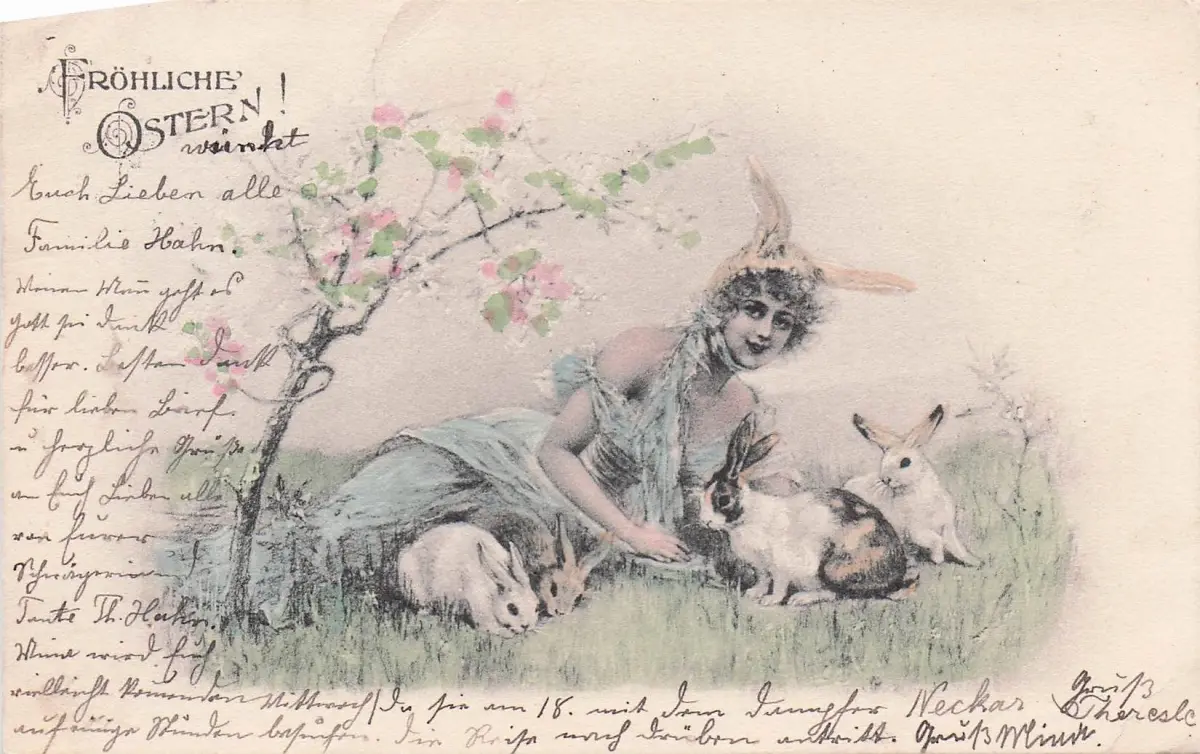 FRÖHLICHE
OSTERN!
wünscht
Euch Lieben alle
Familie Hahn.
Meinem Mann geht es
gott sei dank
besser. Besten Dank
für lieben Brief
u herzliche Grüße
an Euch Lieben alle
von Eurer
Schwägerin u
Tante Th. Hahn.
Mina wird Euch
vielleicht kommenden Mittwoch, da sie am 18. mit dem Dampfer Neckar
auf einige Stunden besuchen. die Reise nach drüben antritt. Gruß Mina.
Gruß
Therese